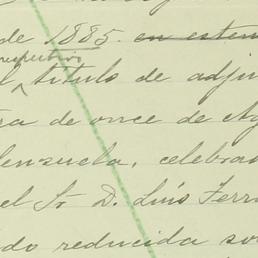 de 1885. en esten
respectivo
l título de adju
ra de once de Ag
lenzuela, celebra
el Sr D. Luís Ferr
do reducida so